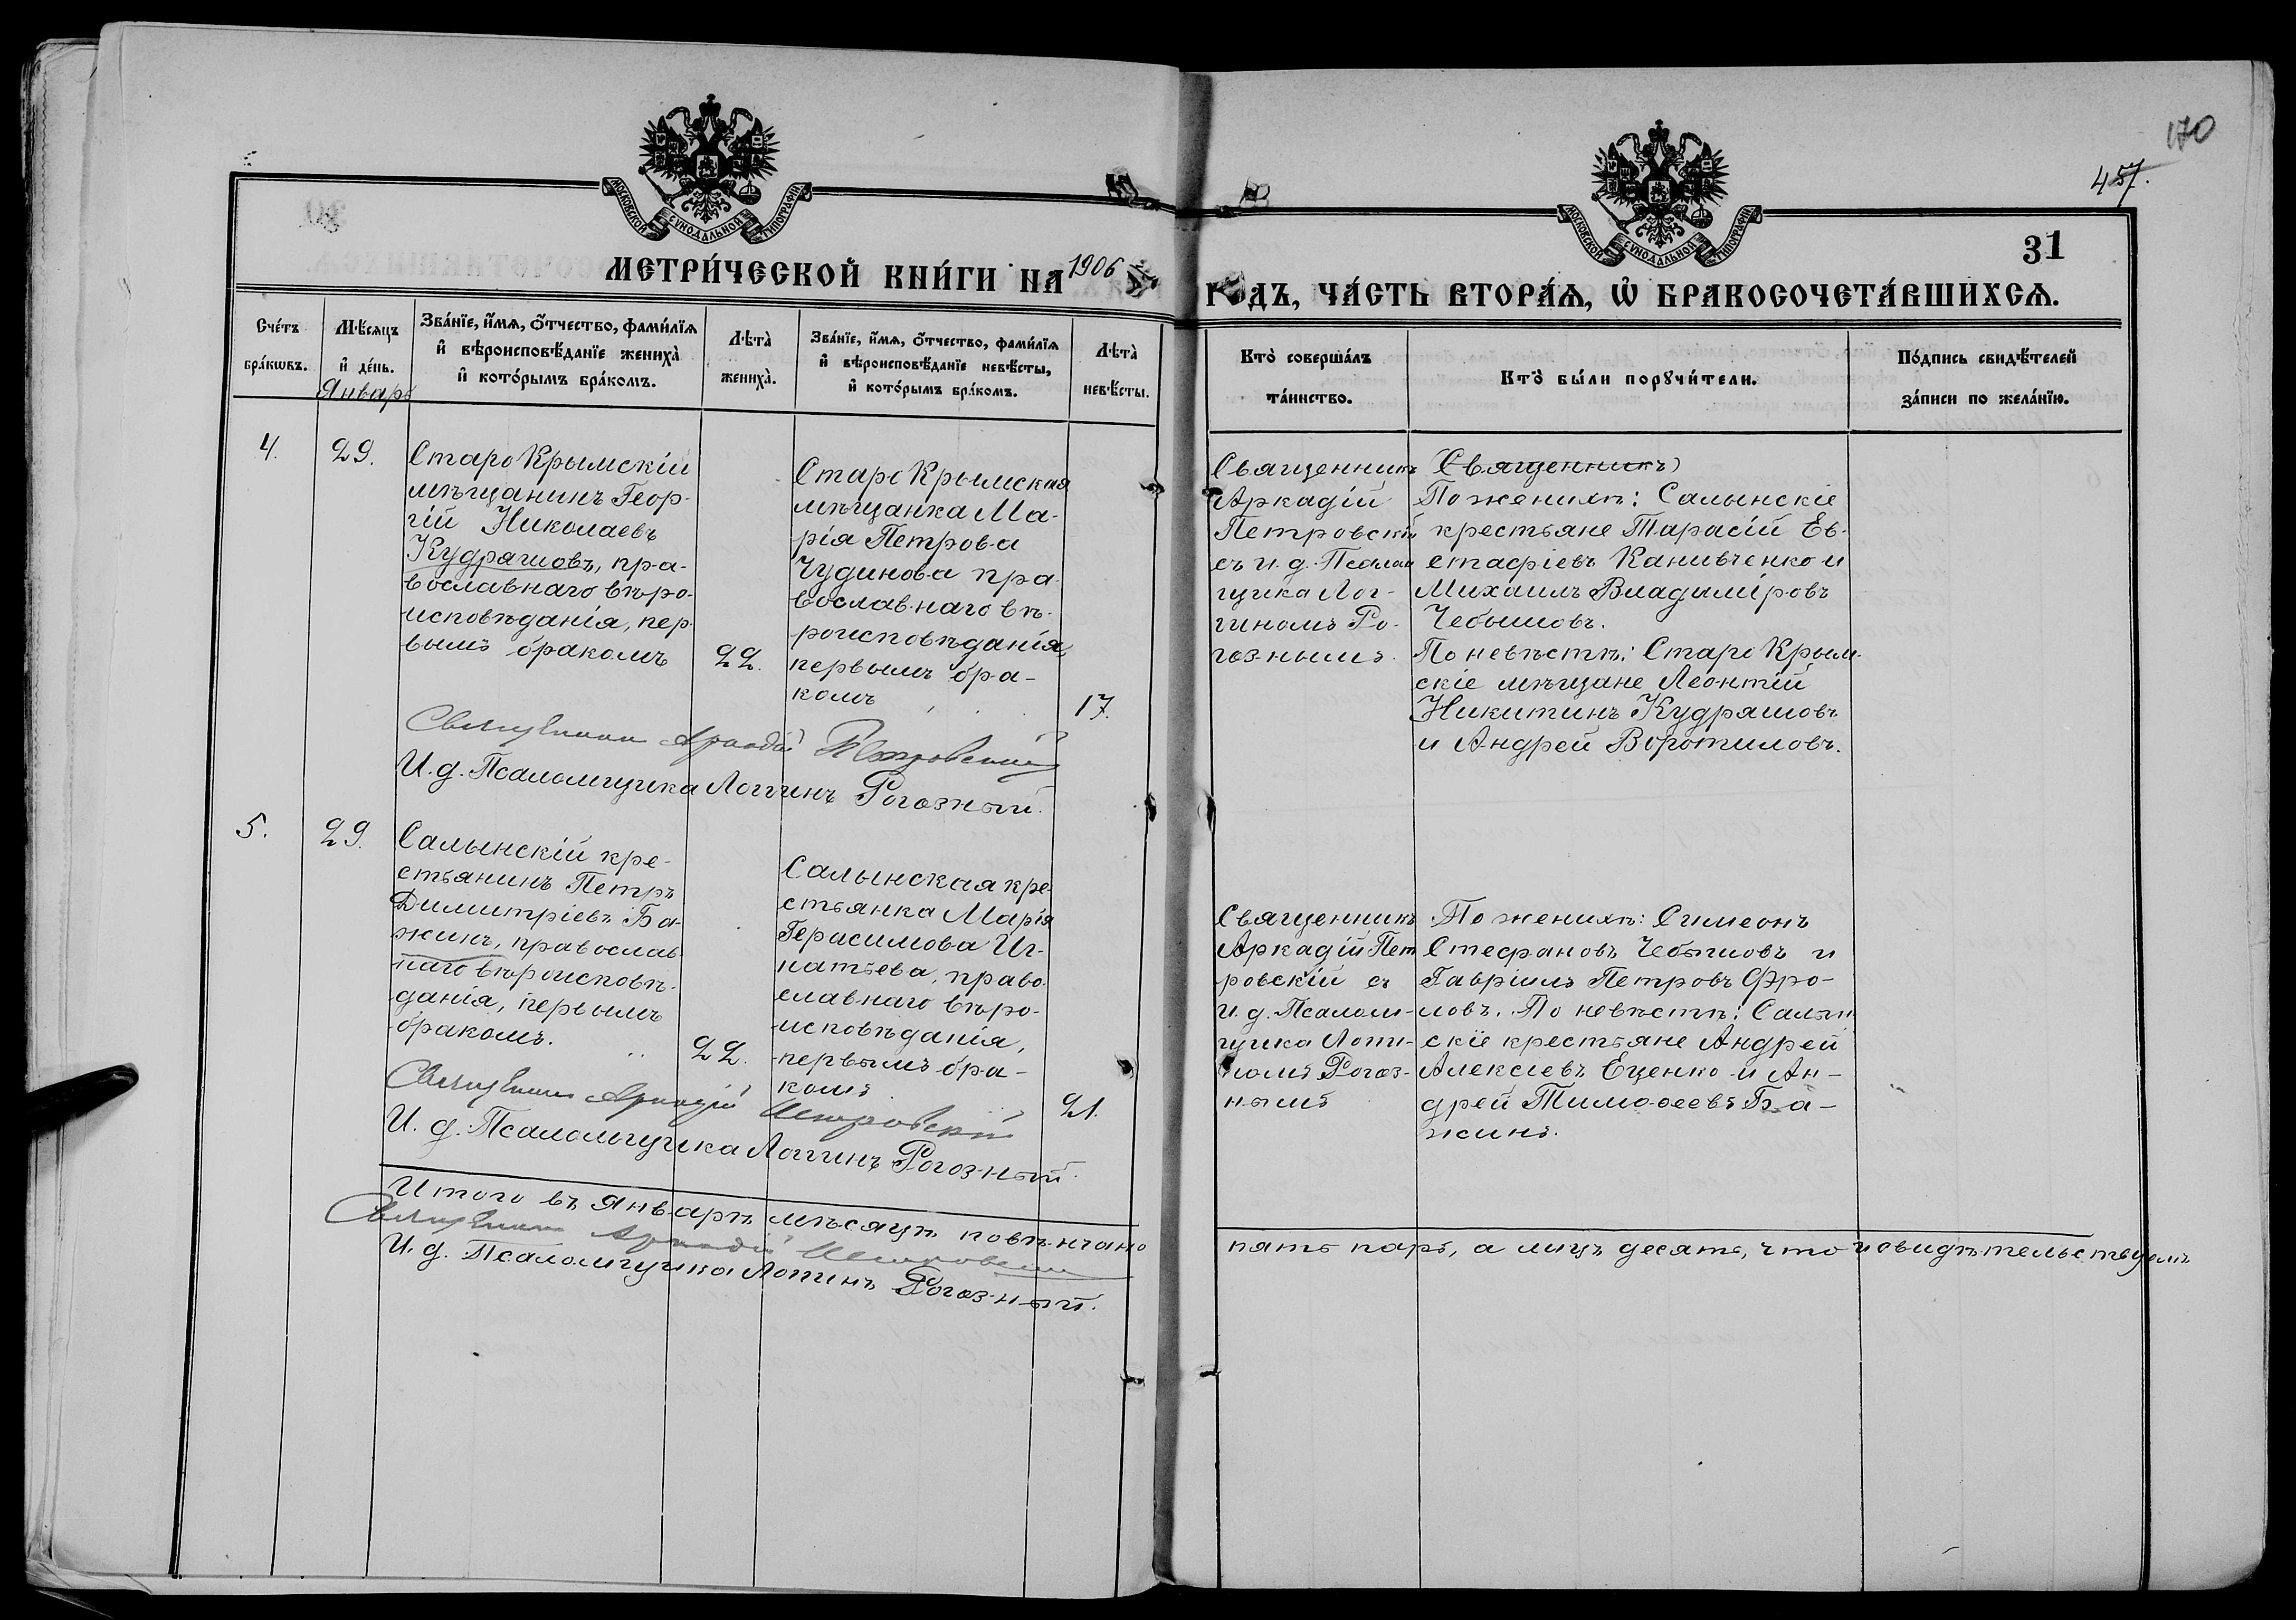 170
457.
31
МОСКОВСКОЙ СѴНОДАЛЬНОЙ ТИПОГРАФІИ.
МОСКОВСКОЙ СѴНОДАЛЬНОЙ ТИПОГРАФІИ.
МЕТРИ́ЧЕСКОЙ КНИ́ГИ НА 1906
ГОДЪ, ЧА́СТЬ ВТОРА́Я, Ѡ БРАКОСОЧЕТА́ВШИХСЯ.
Сче́тъ
бра́кѡвъ.
Мѣ́сяцъ
и҆ де́нь.
Январь
Зва́нїе, и҆́мѧ, ѻ҆́тчество, фами́лїѧ
и҆ вѣроисповѣ́данїе жениха̀
и҆ кото́рымъ бра́комъ.
Лѣта̀
жениха̀.
Зва́нїе, и҆́мѧ, ѻ҆́тчество, фами́лїѧ
и҆ вѣроисповѣ́данїе невѣ́сты,
и҆ кото́рымъ бра́комъ.
Лѣта̀
невѣ́сты.
Кто̀ соверша́лъ
та́инство.
Кто̀ бы́ли порꙋчи́тели.
По́дпись свидѣ́телей
за́писи по жела́нїю.
4.
29.
Старо Крымскій
мѣщанинъ Геор-
гій Николаевъ
Кудряшовъ, пра-
вославнаго вѣро-
исповѣданія, пер-
вымъ бракомъ
22.
Старо Крымская
мѣщанка Ма-
рія Петрова
Чудинова пра-
вославнаго вѣ-
роисповѣданія,
первымъ бра-
комъ
17.
Священникъ
Аркадій
Петровскій
съ и. д. Псалом
щика Лог-
гиномъ Ро-
гознымъ.
(Священникъ)
По женихѣ: Салынскіе
крестьяне Тарасій Ев-
стафіевъ Канивченко и
Михаилъ Владиміровъ
Чебышовъ.
По невѣстѣ: Старо Крым-
скіе мѣщане Леонтій
Никитинъ Кудряшовъ
и Андрей Воротиловъ.
Священникъ Аркадій Петровскій
И. д. Псаломщика Логгинъ Рогозный.
5.
29.
Салынскій кре-
стьянинъ Петръ
Димитріевъ Ба-
жинъ, православ-
наго вѣроисповѣ-
данія, первымъ
бракомъ.
22.
Салынская кре-
стьянка Марія
Герасимова Иг-
натьева, право-
славнаго вѣро-
исповѣданія,
первымъ бра-
комъ
21.
Священникъ
Аркадій Пет
ровскій съ
и. д. Псалом-
щика Логги-
номъ Рогоз-
нымъ
По женихѣ: Симеонъ
Стефановъ Чебышовъ и
Гавріилъ Петровъ Фро-
ловъ. По невѣстѣ: Салын
скіе крестьяне Андрей
Алексіевъ Еценко и Ан-
дрей Тимоѳеевъ Ба-
жинъ.
Священникъ Аркадій Петровскій
И. д. Псаломщика Логгинъ Рогозный.
Итого въ Январѣ мѣсяцѣ повѣнчано
пять паръ, а лицъ десять, что и свидѣтельствуемъ
Священникъ Аркадій Петровскій
И. д. Псаломщика Логгинъ Рогозный.